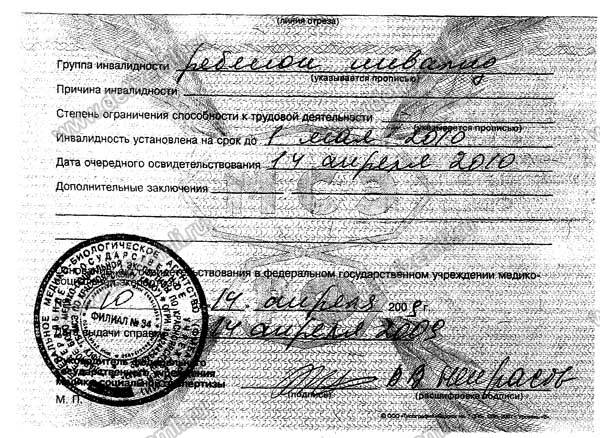 (линия отреза)
Группа инвалидности ребенок инвалид
(указывается прописью)
Причина инвалидности
Степень ограничения способности к трудовой деятельности
(указывается прописью)
Инвалидность установлена на срок до 1 мая 2010
Дата очередного освидетельствования 14 апреля 2010
Дополнительные заключения
МСЭ
освидетельствования в федеральном государственном учреждении медико-
14 апреля 2009 г.
выдачи справки 14 апреля 2009
ФИЛИАЛ № 34
Руководитель федерального
государственного учреждения
медико-социальной экспертизы
В В Некрасов
(подпись) (расшифровка подписи)
М. П.